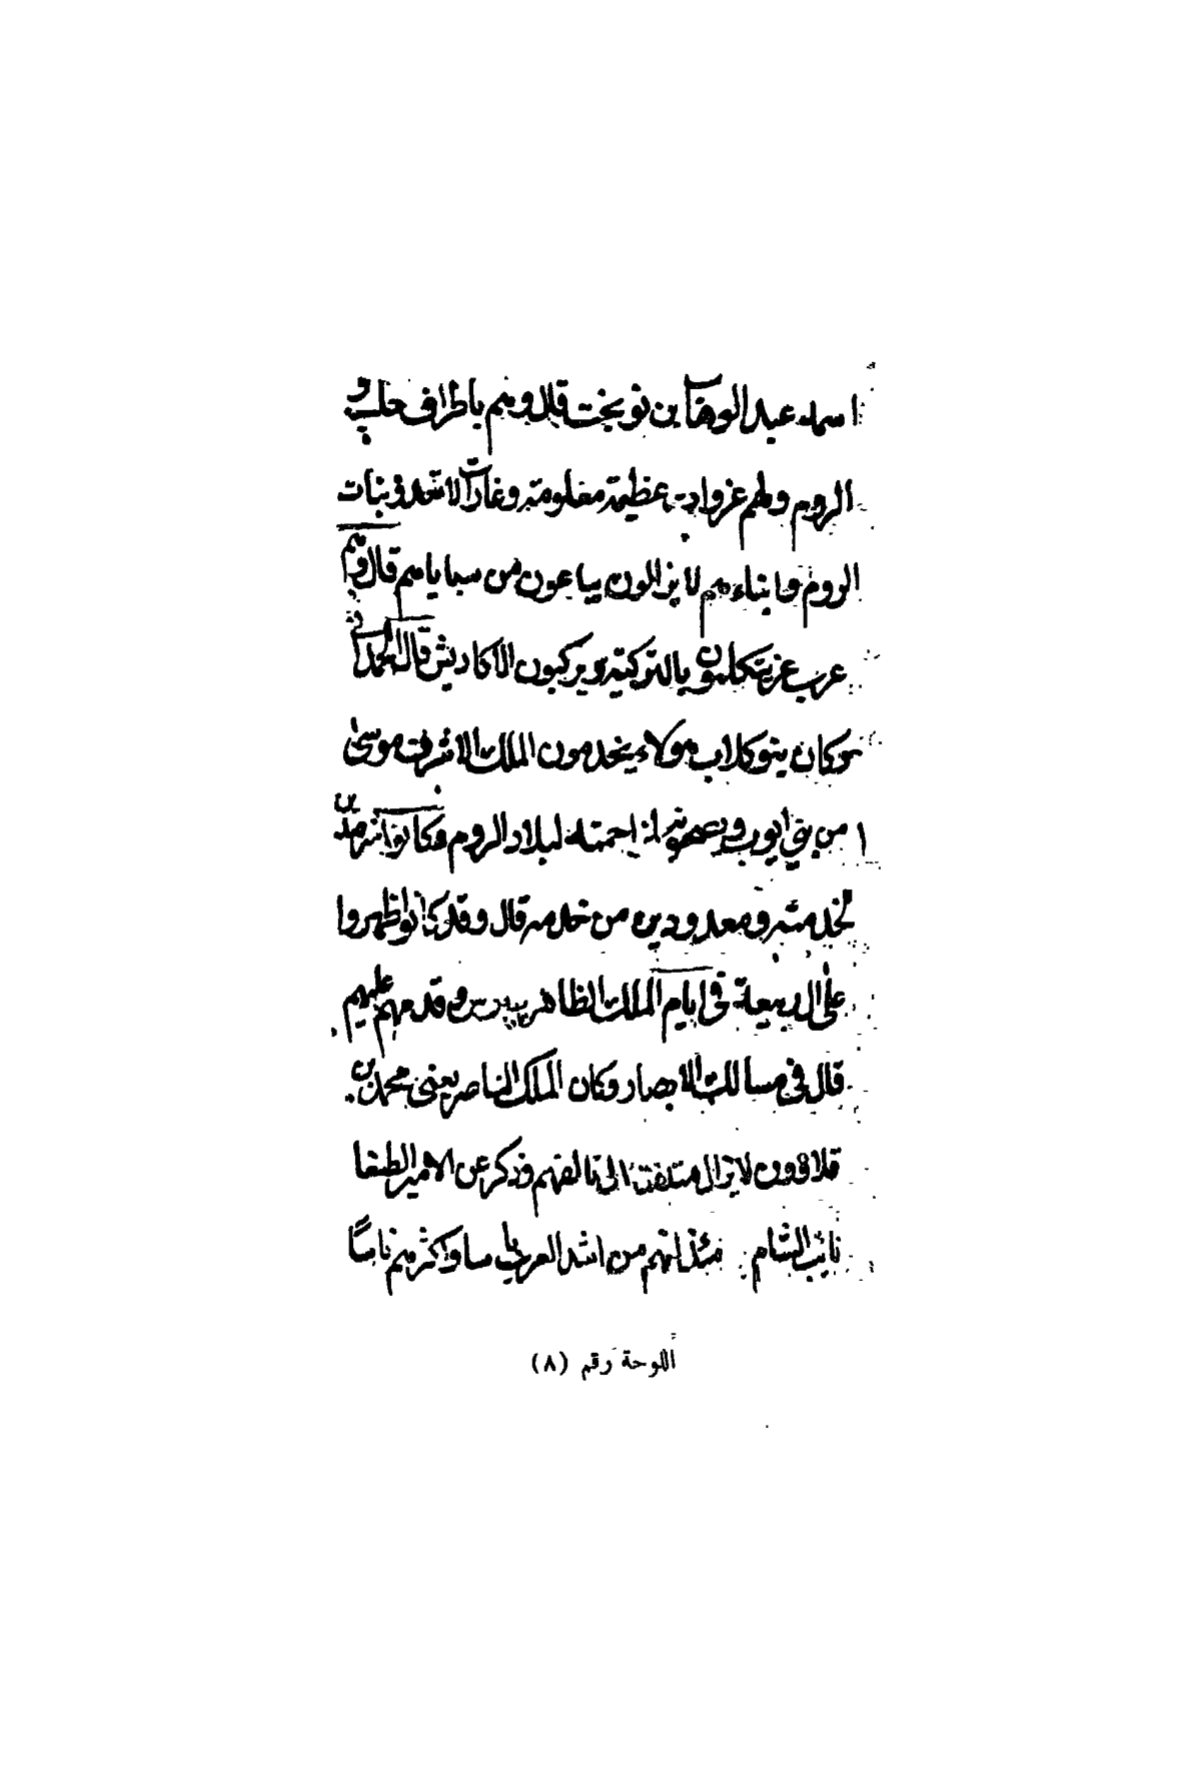 اسمه عبد الوهاب بن نوبخت قال وهم باطراف حلب و
الروم ولهم غزوات عظيمة معلومة وغارات لا تعد وبنات
الروم وابناءهم لا يزالون يباعون من سباياهم قال وهم
عرب غز يتكلمون بالتركية ويركبون الاكاديش قال الحمداني
وكان بنو كلاب هولاء يخدمون الملك الاشرف موسى
من بني ايوب ويصحبونه لمزاحمته لبلاد الروم وكانوا مترصدين
لخدمته ومعدودين من خدمه قال وقد كانوا ظهروا
على ال ربيعة في ايام الملك الظاهر بيبرس وقدمهم عليهم
قال في مسالك الابصار وكان الملك الناصر يعنى محمد بن
قلاوون لا يزال ملتفتا الى تالفهم وذكر عن الامير الطنبغا
نائب الشام انهم من اشد العرب باسا واكثرهم ناسا
اللوحة رقم (٨)